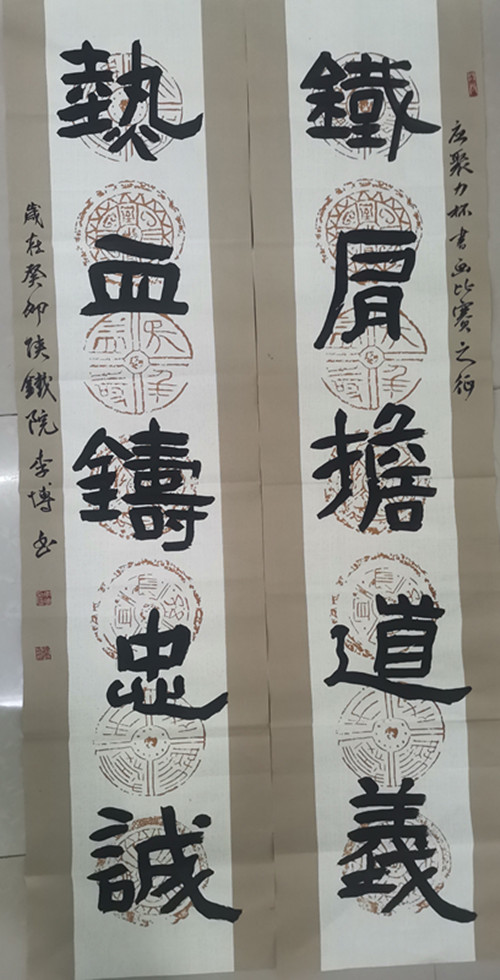 应聚力杯书画比赛之征
鐵肩擔道義
熱血鑄忠誠
歲在癸卯陝鐵院李博书